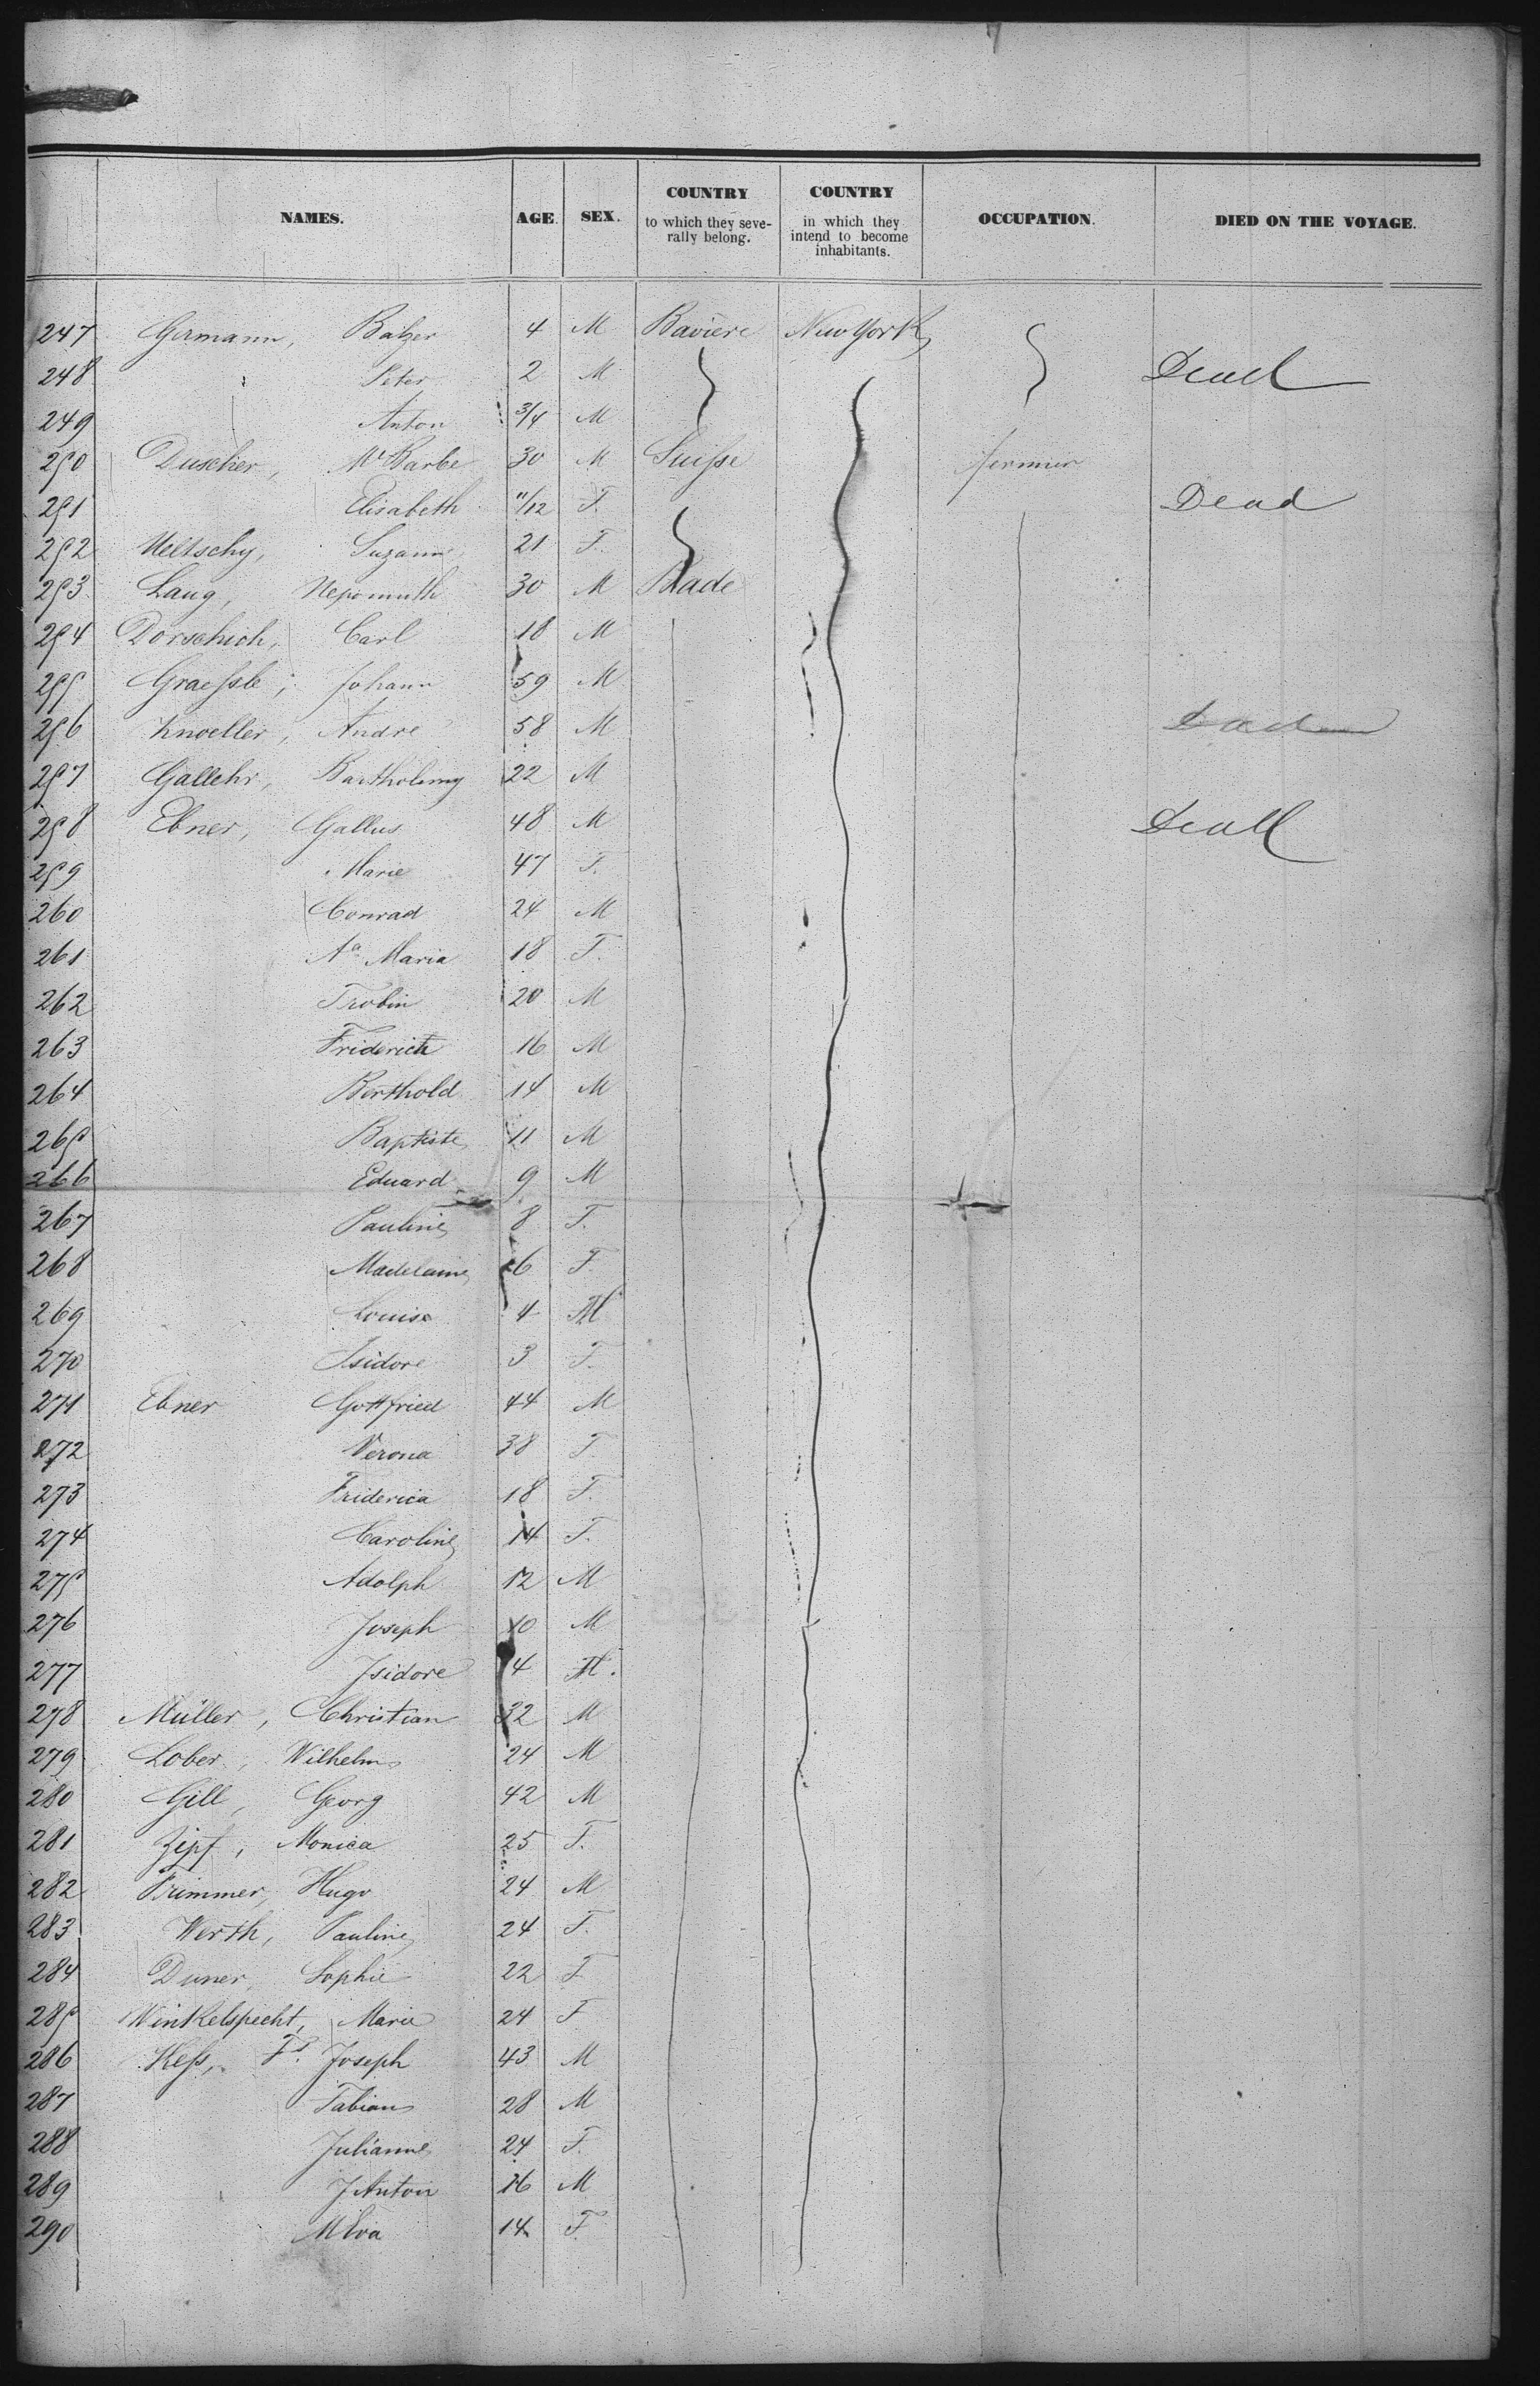 NAMES. AGE. SEX. COUNTRY to which they severally belong. COUNTRY in which they intend to become inhabitants. OCCUPATION. DIED ON THE VOYAGE.
247 Germann, Balzer 4 M Bavière New York
248 Peter 2 M Dead
249 Anton 3/4 M
250 Duscher, Barbe 30 M Suisse fermier
251 Elisabeth 11/12 F. Dead
252 Ueltschy, Suzanne 21 F.
253 Laug, Nepomuth 30 M Bade
254 Dorschich, Carl 18 M
255 Graessle, Johann 59 M
256 Knoeller, André 58 M
257 Gallehr, Bartholemy 22 M
258 Ebner, Gallus 48 M Dead
259 Marie 47 F.
260 Conrad 24 M
261 Aa Maria 18 F.
262 Trobin 20 M
263 Friderich 16 M
264 Berthold 14 M
265 Baptiste 11 M
266 Eduard 9 M
267 Pauline 8 F.
268 Madelaine 6 F
269 Louise 4
270 Isidore 3 F.
271 Ebner Gottfried 44 M
272 Verona 38 F
273 Friderica 18 F.
274 Caroline 14 F.
275 Adolph 12 M
276 Joseph 10 M
277 Isidore 4
278 Müller, Christian 32 M
279 Lober, Wilhelm 24 M
280 Gill, Georg 42 M
281 Zipf, Monica 25 F.
282 Trimmer, Hugo 24 M
283 Werth, Pauline 24 F.
284 Duner, Sophie 22 F
285 Winkelspecht, Marie 24 F
286 Kess, Fs. Joseph 43 M
287 Fabian 28 M
288 Julianne 24 F.
289 J Anton 16 M
290 M Eva 14 F.